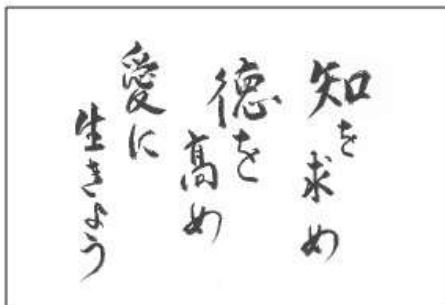 知を求め
徳を髙め
愛に
生きよう